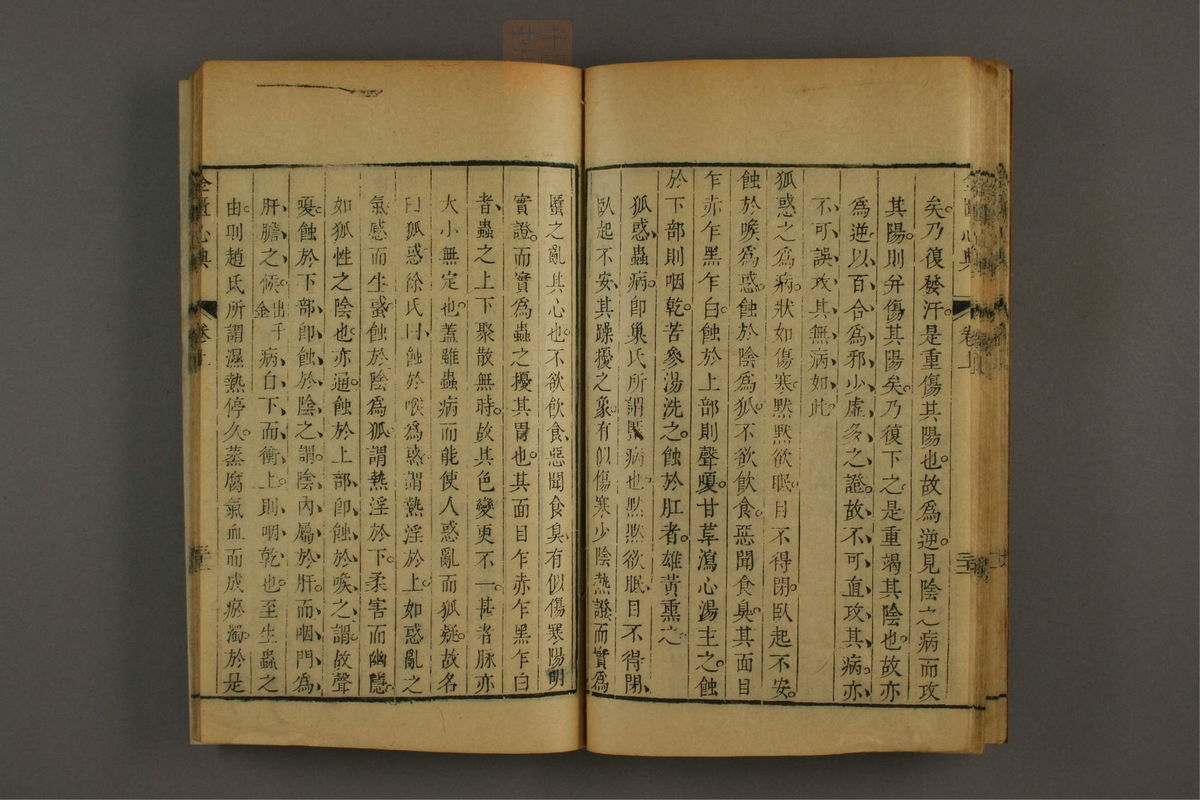 矣。乃復發汗。是重傷其陽也。故為逆。見陰之病而攻
其陽。則幷傷其陽矣。乃復下之。是重竭其陰也。故亦
為逆。以百合為邪少虛多之證。故不可直攻其病。亦
不可誤攻其無病如此。
狐惑之為病。狀如傷寒。默默欲眠。目不得閉。臥起不安。
蝕於喉為惑。蝕於陰為狐。不欲飲食。惡聞食臭。其面目
乍赤乍黑乍白。蝕於上部則聲嗄。甘草瀉心湯主之。蝕
於下部則咽乾。苦參湯洗之。蝕於肛者。雄黃熏之。
狐惑。蟲病。即巢氏所謂病也。默默欲眠。目不得閉。
臥起不安。其躁擾之象。有似傷寒少陰熱證。而實為
䘌之亂其心也。不欲飲食。惡聞食臭。有似傷寒陽明
實證。而實為蟲之擾其胃也。其面目乍赤乍黑乍白
者。蟲之上下聚散無時。故其色變更不一。甚者脉亦
大小無定也。蓋雖蟲病。而能使人惑亂而狐疑。故名
曰狐惑。徐氏曰。蝕於喉為惑。謂熱淫於上。如惑亂之
氣感而生惑。蝕於陰為狐。謂熱淫於下。柔害而幽隱。
如狐性之陰也。亦通。蝕於上部。即蝕於喉之謂。故聲
嗄。蝕於下部。即蝕於陰之謂。陰內屬於肝。而咽門為
肝膽之候。出千金病自下而衝上。則咽乾也。至生蟲之
由。則趙氏所謂濕熱停久。蒸腐氣血而成瘀濁。於是
金匱心典
卷上
三十三